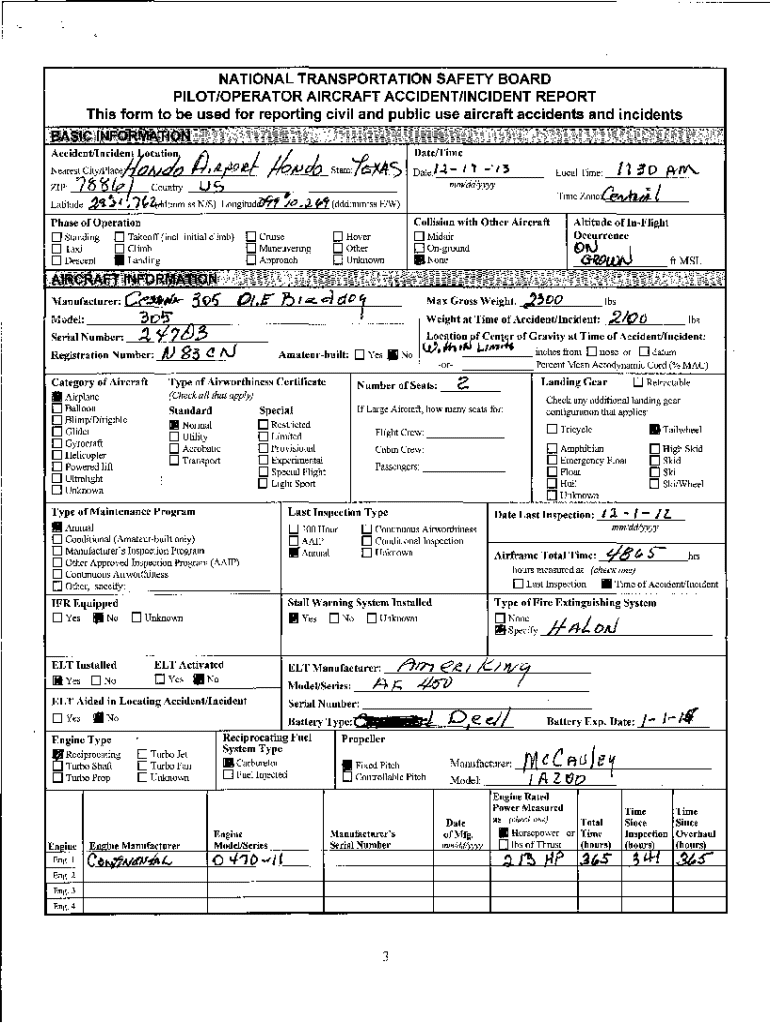 NATIONAL TRANSPORTATION SAFETY BOARD
PILOT/OPERATOR AIRCRAFT ACCIDENT/INCIDENT REPORT
This form to be used for reporting civil and public use aircraft accidents and incidents
BASIC INFORMATION
Accident/Incident Location
Nearest City/Place: Hondo Airport Hondo State: Texas
ZIP: 78861 Country US
Latitude (dd:mm:ss N/S) Longitude (ddd:mm:ss E/W)
Date/Time
Date: 12-17-13 Local Time: 1130 AM
mm/dd/yyyy
Time Zone: Central
Phase of Operation
Standing Takeoff (incl. initial climb) Cruise Hover
Taxi Climb Maneuvering Other
Descent Landing Approach Unknown
Collision with Other Aircraft
Midair
On-ground
None
Altitude of In-Flight
Occurrence
ON
GROUN ft MSL
AIRCRAFT INFORMATION
Manufacturer: Cessna 305 O1.E Birddog
Model: 305
Serial Number: 24703
Registration Number: N83CN Amateur-built: Yes No
Max Gross Weight: 2300 lbs
Weight at Time of Accident/Incident: 2100 lbs
Location of Center of Gravity at Time of Accident/Incident:
Within Limits inches from nose or datum
-or- Percent Mean Aerodynamic Cord (% MAC)
Category of Aircraft
Airplane
Balloon
Blimp/Dirigible
Glider
Gyrocraft
Helicopter
Powered lift
Ultralight
Unknown
Type of Airworthiness Certificate
(Check all that apply)
Standard Special
Normal Restricted
Utility Limited
Acrobatic Provisional
Transport Experimental
Special Flight
Light Sport
Number of Seats: 2
If Large Aircraft, how many seats for:
Flight Crew:
Cabin Crew:
Passengers:
Landing Gear Retractable
Check any additional landing gear
configuration that applies:
Tricycle Tailwheel
Amphibian High Skid
Emergency Float Skid
Float Ski
Hull Ski/Wheel
Unknown
Type of Maintenance Program
Annual
Conditional (Amateur-built only)
Manufacturer's Inspection Program
Other Approved Inspection Program (AAIP)
Continuous Airworthiness
Other, specify:
Last Inspection Type
100 Hour Continuous Airworthiness
AAIP Conditional Inspection
Annual Unknown
Date Last Inspection: 12-1-12
mm/dd/yyyy
Airframe Total Time: 4865 hrs
hours measured at (check one)
Last Inspection Time of Accident/Incident
IFR Equipped
Yes No Unknown
Stall Warning System Installed
Yes No Unknown
Type of Fire Extinguishing System
None
Specify HALON
ELT Installed ELT Activated
Yes No Yes No
ELT Aided in Locating Accident/Incident
Yes No
ELT Manufacturer: Ameri King
Model/Series: AK 450
Serial Number:
Battery Type: D cell Battery Exp. Date:
Engine Type
Reciprocating Turbo Jet
Turbo Shaft Turbo Fan
Turbo Prop Unknown
Reciprocating Fuel
System Type
Carburetor
Fuel Injected
Propeller
Fixed Pitch
Controllable Pitch
Manufacturer: McCauley
Model: 1A200
Engine Engine Manufacturer
Engine
Model/Series
Manufacturer's
Serial Number
Date
of Mfg.
mm/dd/yyyy
Engine Rated
Power Measured
as (check one)
Horsepower or
lbs of Thrust
Total
Time
(hours)
Time
Since
Inspection
(hours)
Time
Since
Overhaul
(hours)
Eng. 1 Continental O 470-11 213 HP 365 341 365
Eng. 2
Eng. 3
Eng. 4
3